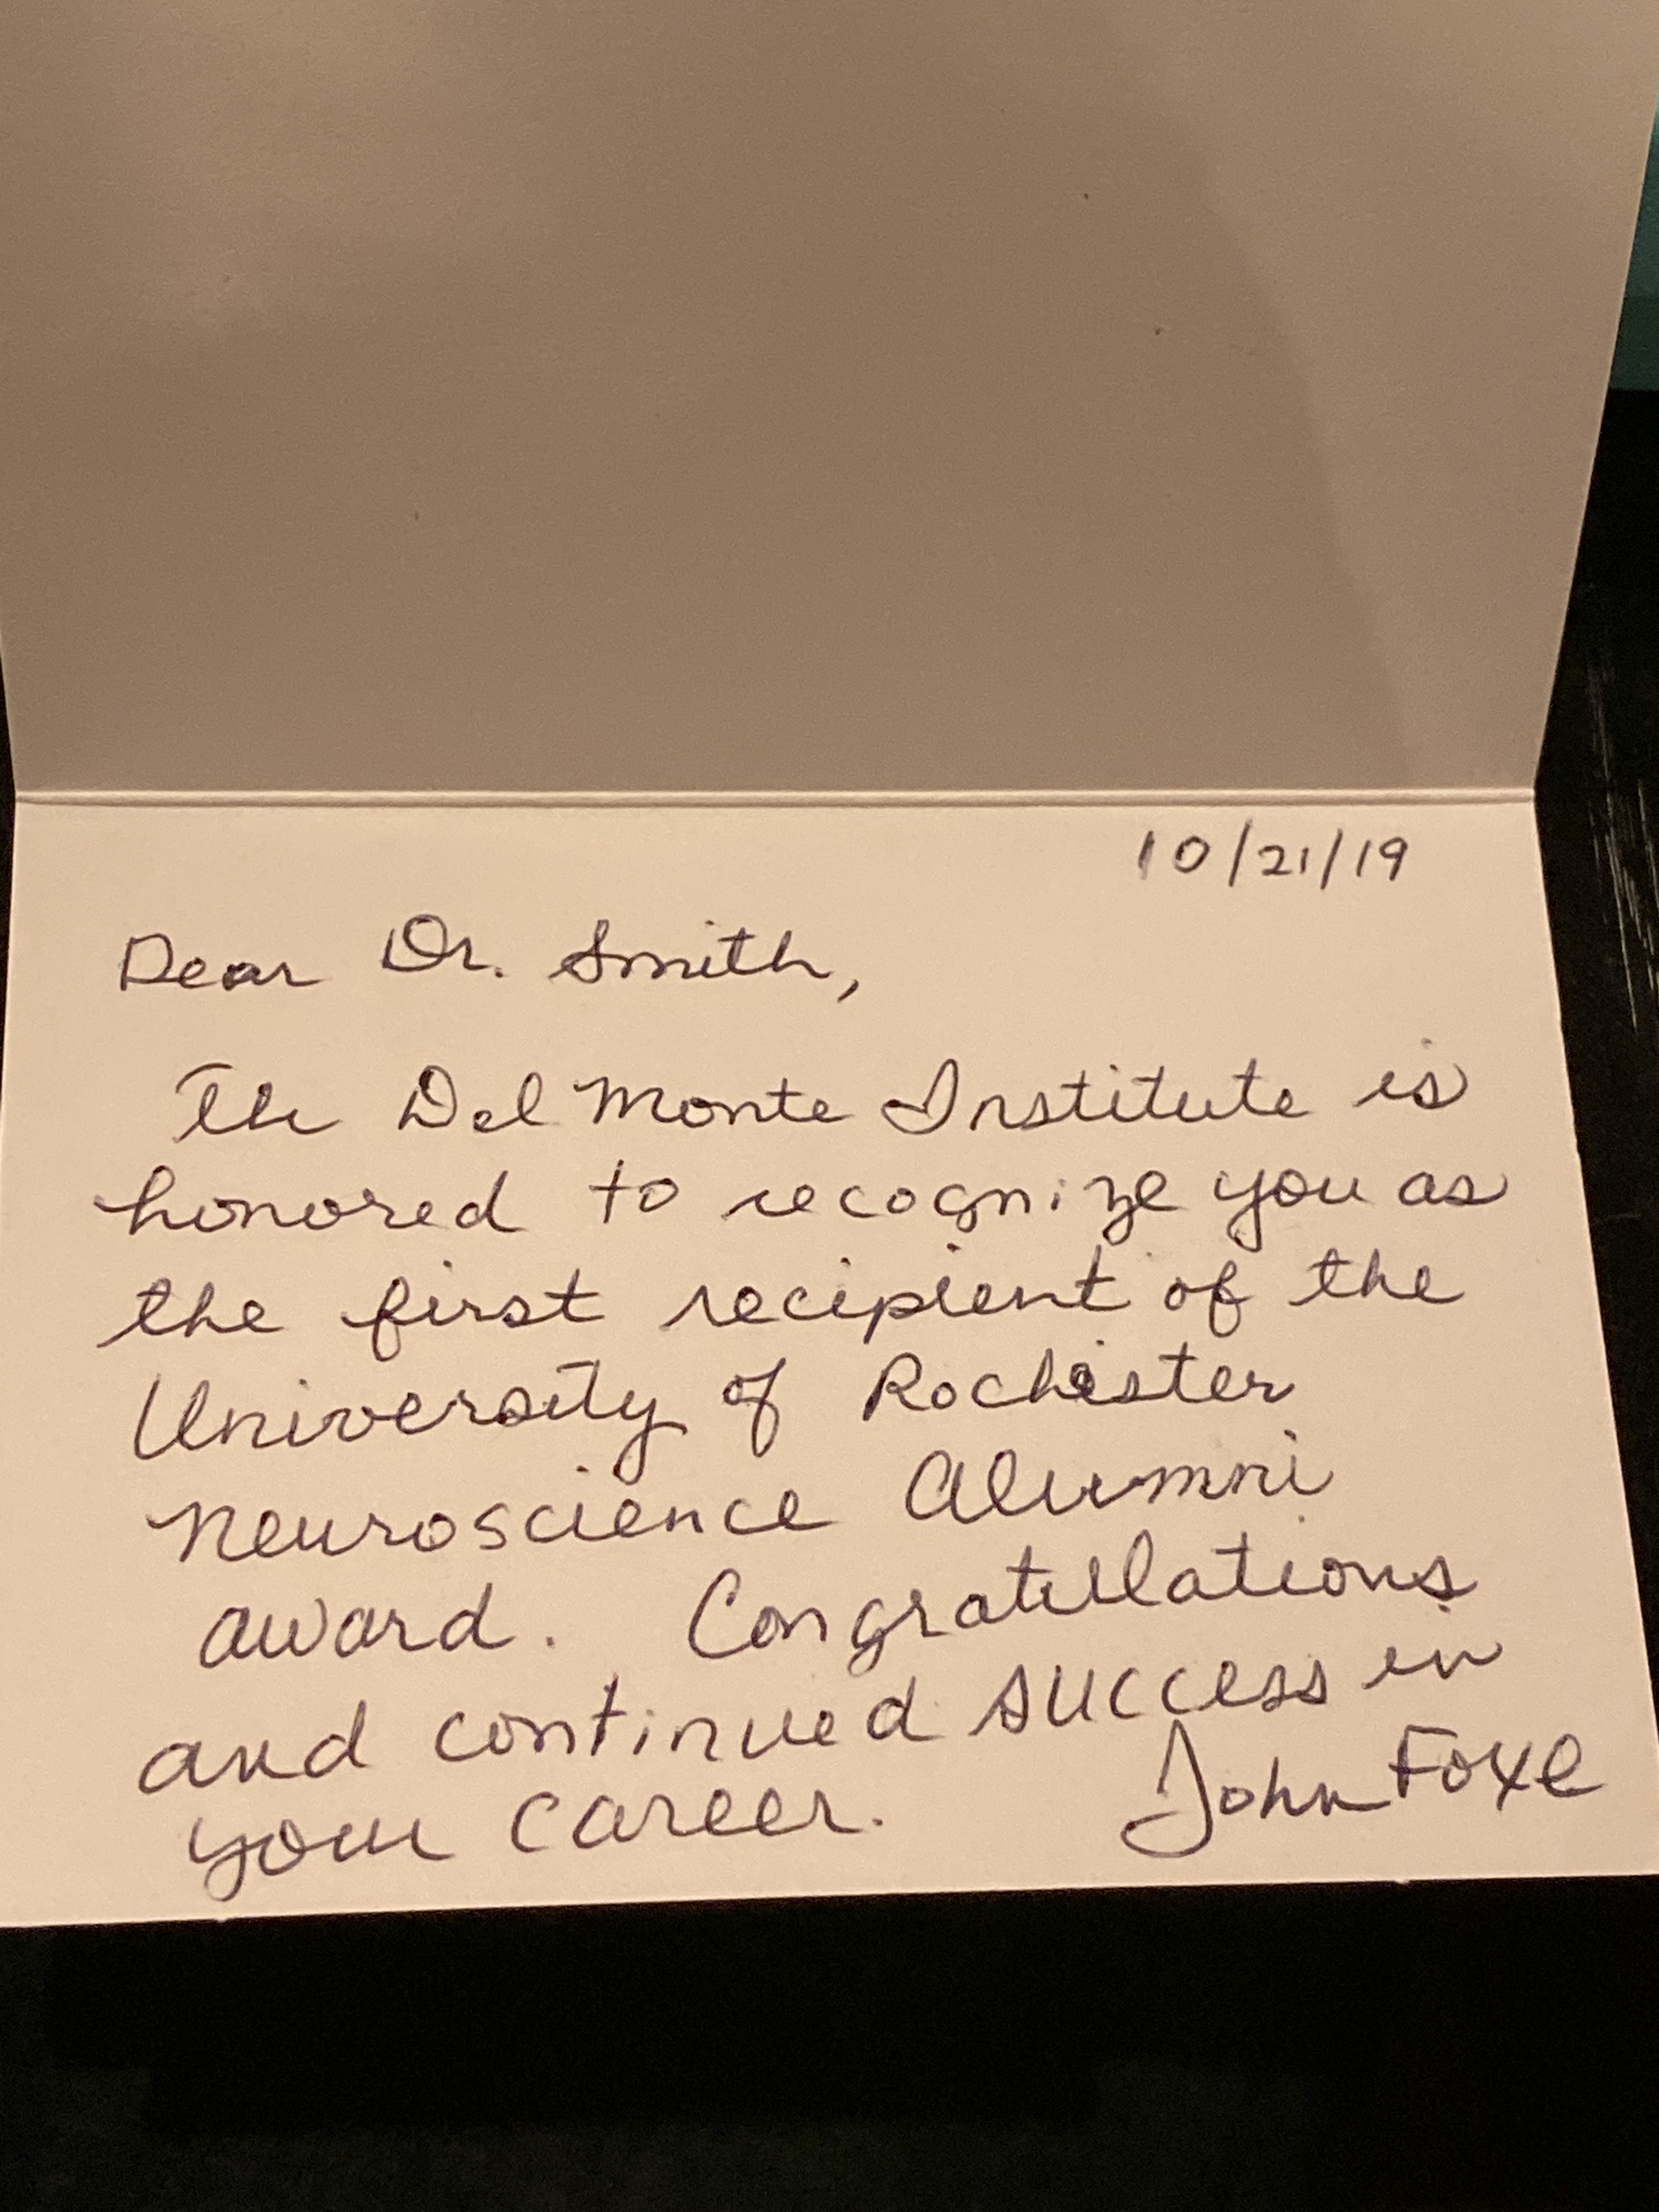 10/21/19
Dear Dr. Smith,
The Del Monte Institute is
honored to recognize you as
the first recipient of the
University of Rochester
Neuroscience Alumni
award. Congratulations
and continued success in
your career. John Foxe